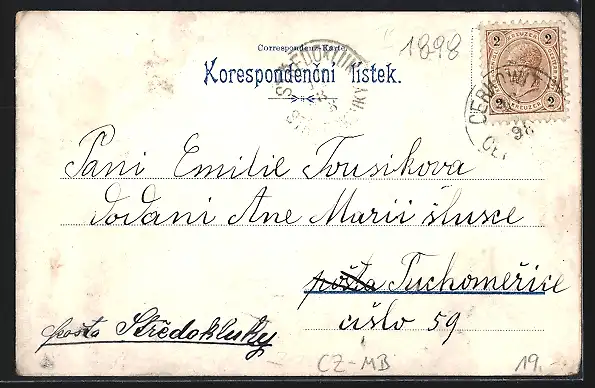 Correspondenz-Karte.
1898
Korespondenční lístek.
2 KREUZER 2
2 KREUZER 2
98
Paní Emilie Tousikova
dodani Ane Marii šlusce
pošta Tuchoměřice
čislo 59
posta Středokluky
CZ-MB
19.-